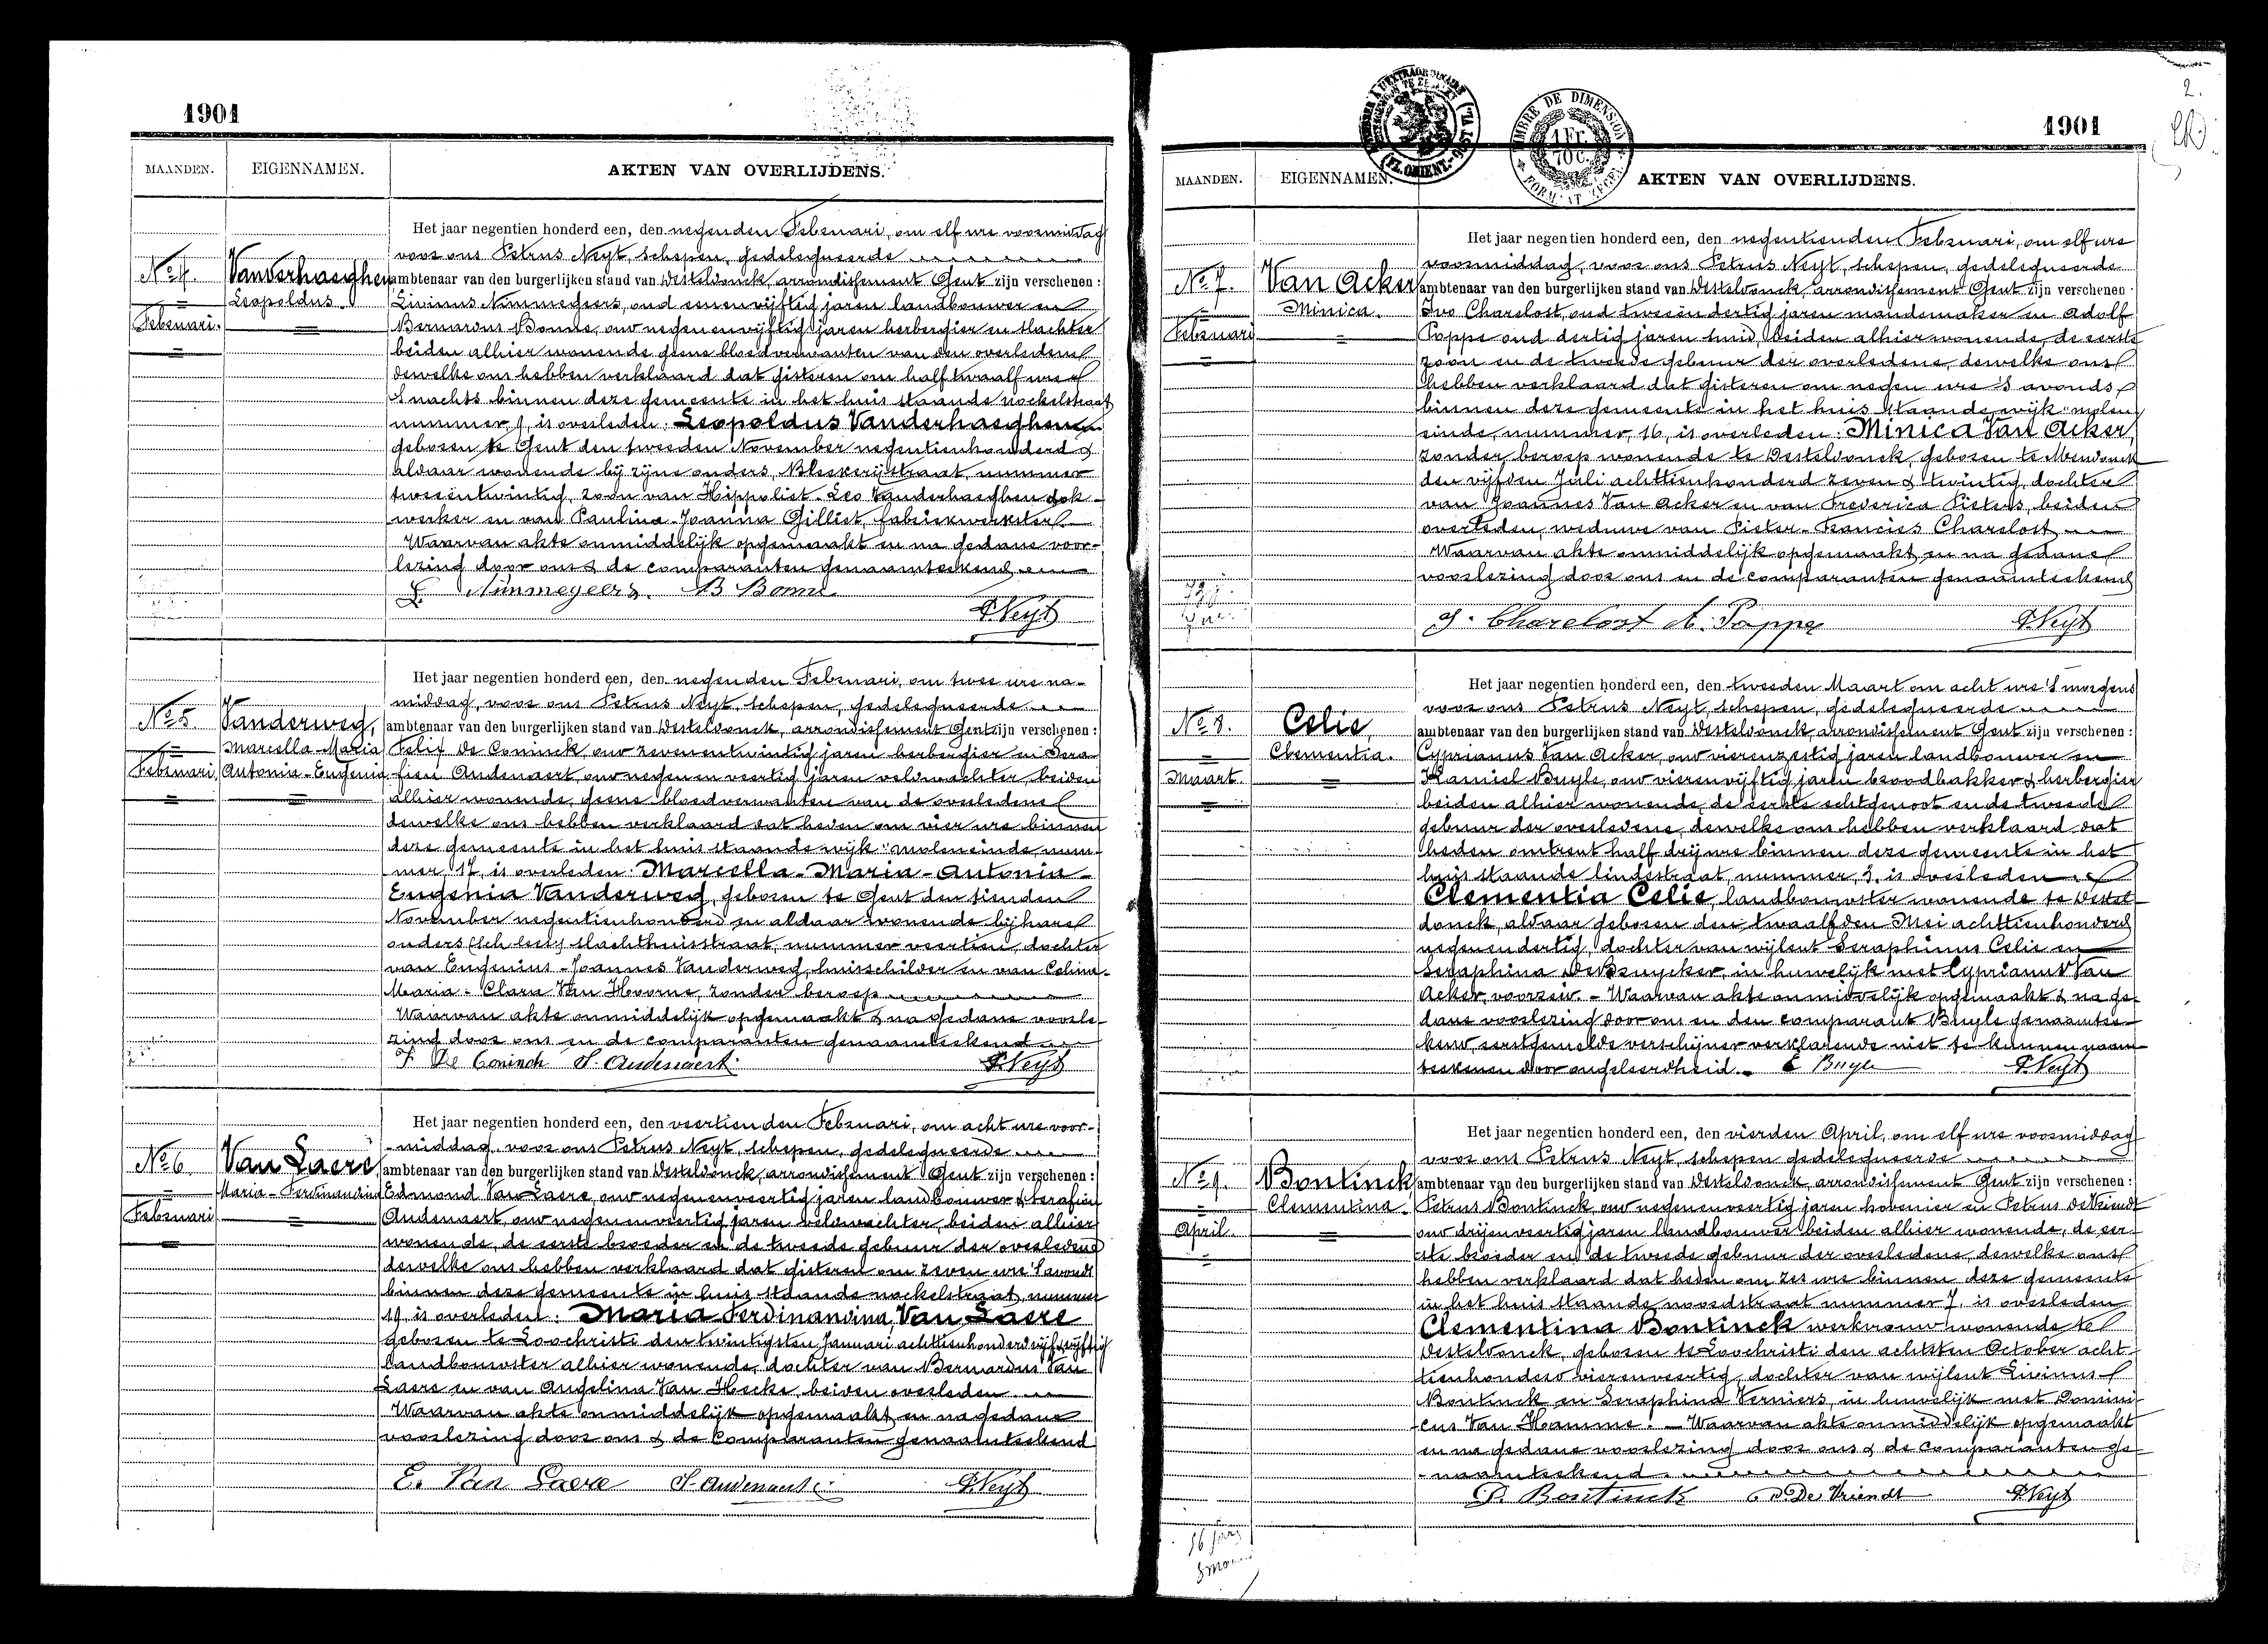 1901
MAANDEN. EIGENNAMEN. AKTEN VAN OVERLIJDENS.
Het jaar negentien honderd een, den negenden Februari, om elf ure voormiddag
voor ons Petrus Neyt, schepen, gedelegueerde
No 4. Vanderhaeghen ambtenaar van den burgerlijken stand van Desteldonck, arrondissement Gent zijn verschenen :
Leopoldus. Livinus Nimmegeers, oud eenenvijftig jaren landbouwer en
Februari. Bernardus Bonne, oud negenenvijftig jaren herbergier en slachter
beiden alhier wonende geene bloedverwanten van den overledene
dewelke ons hebben verklaard dat gisteren om half twaalf ure
's nachts binnen deze gemeente in het huis staande nockelstraat
nummer 9, is overleden : Leopoldus Vanderhaeghen
geboren te Gent den tweeden November negentienhonderd &
aldaar wonende bij zijne ouders, Bleekerijstraat, nummer
tweeëntwintig, zoon van Hippoliet-Leo Vanderhaeghen dok-
werker en van Paulina-Joanna Gilliet, fabriekwerkster
Waarvan akte onmiddelijk opgemaakt en na gedane voor-
lezing door ons & de comparanten genaamteekend
L. Nimmegeers. B Bonne P. Neyt
Het jaar negentien honderd een, den negenden Februari, om twee ure na-
middag, voor ons Petrus Neyt, schepen, gedelegueerde
No 5 Vanderweg, ambtenaar van den burgerlijken stand van Desteldonck, arrondissement Gent zijn verschenen :
Marcella-Maria Felix De Coninck, oud zevenentwintig jaren herbergier en Sera-
Februari, Antonia-Eugenia fien Audenaert, oud negenenveertig jaren veldwachter, beiden
alhier wonende, geene bloedverwanten van de overledene
dewelke ons hebben verklaard dat heden om vier ure binnen
deze gemeente in het huis staande wijk "moleneinde, num-
mer 17, is overleden : Marcella-Maria-Antonia-
Eugenia Vanderweg, geboren te Gent den tienden
November negentienhonderd en aldaar wonende bij hare
ouders slachthuisstraat, nummer veertien, dochter
van Eugenius-Joannes Vanderweg, huisschilder en van Celina-
Maria-Clara Van Hoorne, zonder beroep
Waarvan akte onmiddelijk opgemaakt & na gedane voorle-
zing door ons en de comparanten genaamteekend
F De Coninck S. Audenaert P. Neyt
Het jaar negentien honderd een, den veertienden Februari, om acht ure voor-
middag, voor ons Petrus Neyt, schepen, gedelegueerde
No 6 Van Laere, ambtenaar van den burgerlijken stand van Desteldonck, arrondissement Gent zijn verschenen :
Maria-Ferdinandina Edmond Van Laere, oud negenenveertig jaren landbouwer & Serafien
Februari Audenaert, oud negenenveertig jaren veldwachter, beiden alhier
wonende, de eerste broeder en de tweede gebuur der overledene
dewelke ons hebben verklaard dat gisteren om zeven ure 's avonds
binnen deze gemeente in huis staande nockelstraat, nummer
19 is overleden : Maria Ferdinandina Van Laere
geboren te Loochristi den twintigsten Januari achttienhonderd vijfenvijftig
landbouwster alhier wonende, dochter van Bernardus Van
Laere en van Angelina Van Hecke, beiden overleden
Waarvan akte onmiddelijk opgemaakt en na gedane
voorlezing door ons & de Comparanten genaamteekend
E. Van Laere S. Audenaert P. Neyt
2.
1901
TIMBRE DE DIMENSION
1 Fr. 70 c.
MAANDEN. EIGENNAMEN. AKTEN VAN OVERLIJDENS.
Het jaar negentien honderd een, den negentienden Februari, om elf ure
voormiddag, voor ons Petrus Neyt, schepen, gedelegueerde
No 7. Van Acker ambtenaar van den burgerlijken stand van Desteldonck, arrondissement Gent zijn verschenen :
Minica. Ivo Charelost, oud tweeëndertig jaren mandemaker en Adolf
Februari Poppe oud dertig jaren smid, beiden alhier wonende, de eerste
zoon en de tweede gebuur der overledene, dewelke ons
hebben verklaard dat gisteren om negen ure 's avonds
binnen deze gemeente in het huis staande wijk "molen
einde, nummer, 16, is overleden : Minica Van Acker,
zonder beroep wonende te Desteldonck, geboren te Mendonck
den vijfden Juli achttienhonderd zeven & twintig, dochter
van Joannes Van Acker en van Frederica Pieters, beiden
overleden, weduwe van Pieter-Francies Charelost
Waarvan akte onmiddelijk opgemaakt, en na gedane
voorlezing door ons en de comparanten genaamteekend
J. Charelost A. Poppe P. Neyt
Het jaar negentien honderd een, den tweeden Maart om acht ure 's morgens
voor ons Petrus Neyt, schepen, gedelegueerde
No 8. Celie, ambtenaar van den burgerlijken stand van Desteldonck, arrondissement Gent zijn verschenen :
Clementia. Cyprianus Van Acker, oud vierenzestig jaren landbouwer en
Maart. Kamiel Buyle, oud vierenvijftig jaren broodbakker & herbergier
beiden alhier wonende, de eerste echtgenoot en de tweede
gebuur der overledene, dewelke ons hebben verklaard dat
heden omtrent half drij ure binnen deze gemeente in het
huis staande lindestraat, nummer, 3, is overleden
Clementia Celie, landbouwster wonende te Destel-
donck, aldaar geboren den twaalfden Mei achttienhonderd
negenendertig, dochter van wijlent Seraphinus Celie en
Seraphina De Bruycker, in huwelijk met Cyprianus Van
Acker, voorzeid. - Waarvan akte onmiddelijk opgemaakt & na ge-
dane voorlezing door ons en den comparant Buyle genaamtee-
kend, eerstgemelde verschijner verklarende niet te kunnen naam-
teekenen door ongeleerdheid. C Buyle P. Neyt
Het jaar negentien honderd een, den vierden April, om elf ure voormiddag
voor ons Petrus Neyt, schepen gedelegueerde
No 9. Bontinck ambtenaar van den burgerlijken stand van Desteldonck, arrondissement Gent zijn verschenen :
Clementina. Petrus Bontinck, oud negenenveertig jaren hovenier en Petrus De Vriendt
April oud drijenveertig jaren landbouwer beiden alhier wonende, de eer-
ste broeder en de tweede gebuur der overledene, dewelke ons
hebben verklaard dat heden om zes ure binnen deze gemeente
in het huis staande noordstraat nummer 7, is overleden
Clementina Bontinck werkvrouw wonende te
Desteldonck, geboren te Loochristi den achtsten October acht-
tienhonderd vierenveertig, dochter van wijlent Livinus
Bontinck en Seraphina Verniers, in huwelijk met Domini-
cus Van Hamme. - Waarvan akte onmiddelijk opgemaakt
en na gedane voorlezing door ons & de comparanten ge-
naamteekend
P. Bontinck P De Vriendt P. Neyt